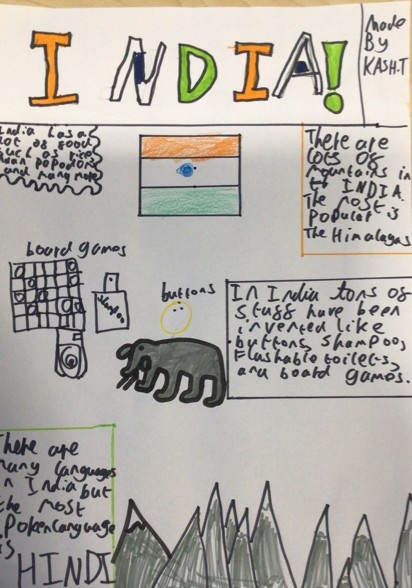 INDIA!
Made
By
KASH.T
India has a
lot of food
such as rice
naan popodoms
and many more
There are
lots of
mountains in
INDIA.
The most
Popular is
The Himalayas
board games
buttons
In India tons of
stuff have been
invented like
buttons, Shampoo,
Flushable toilets,
and board games.
There are
many languages
in India but
the most
spoken language
is
HINDI